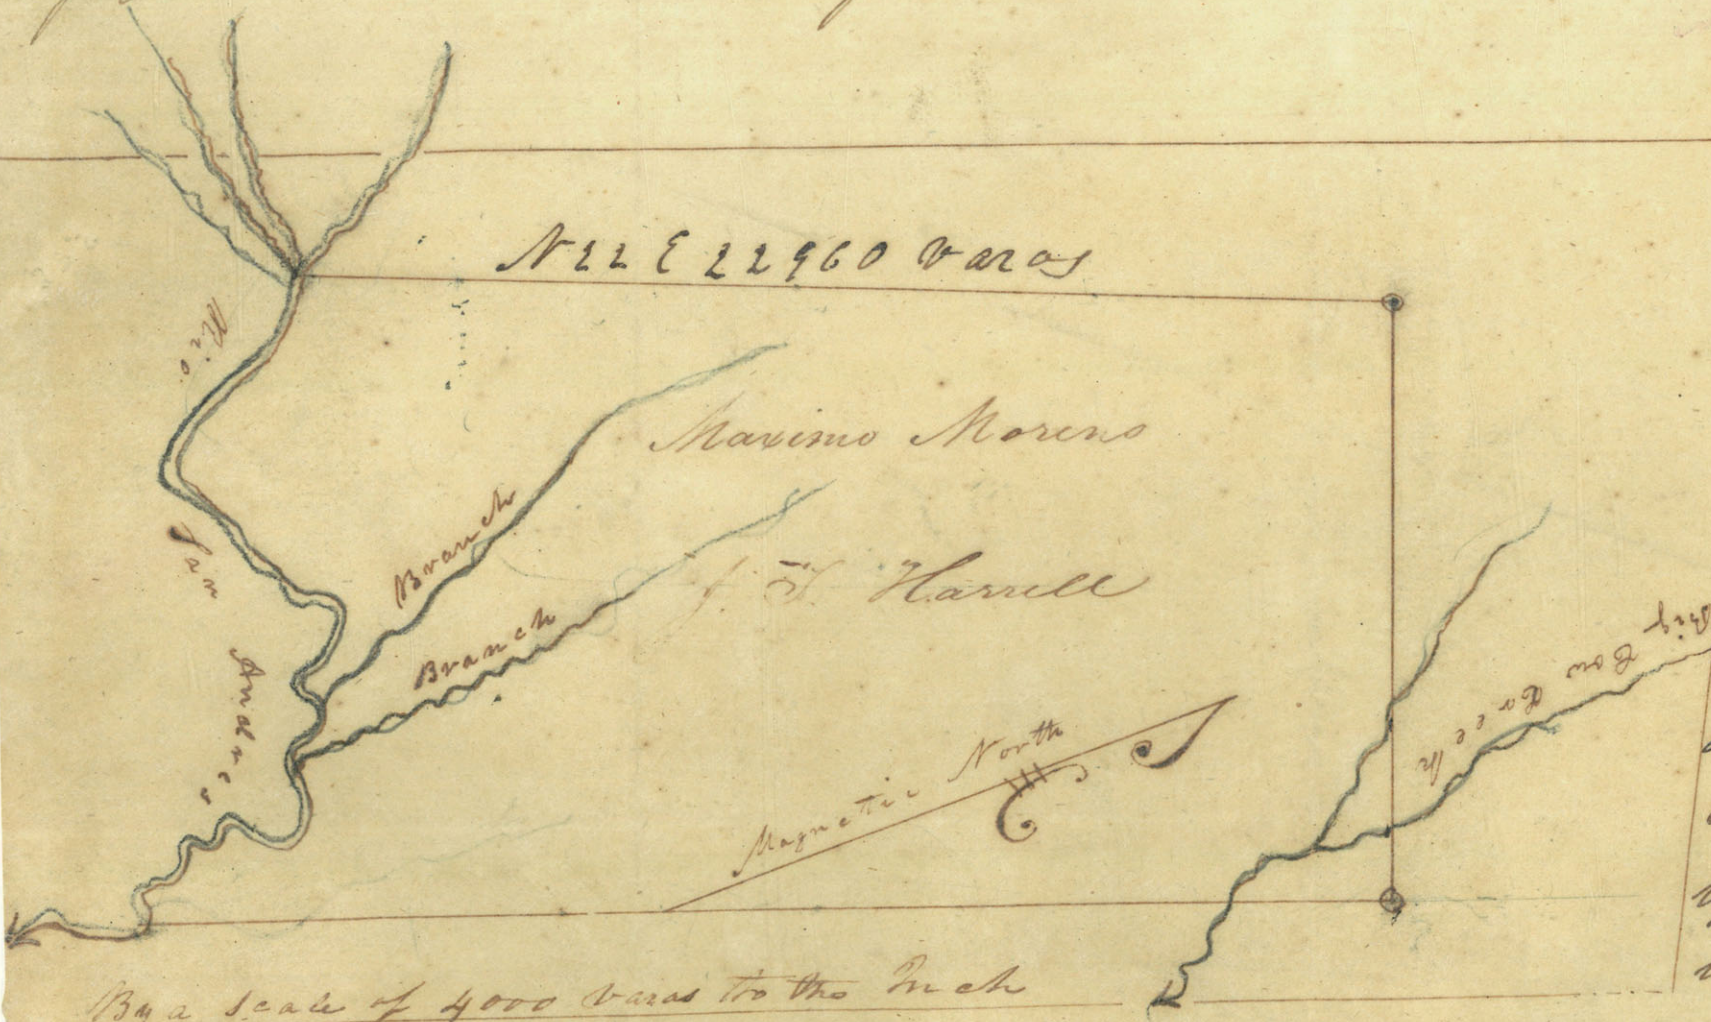 N 22 E 22960 varas
Rio San Andres
Maximo Moreno
Branch
Branch
J. T. Harrell
Big Cow Creek
Magnetic North
By a scale of 4000 varas to the Inch